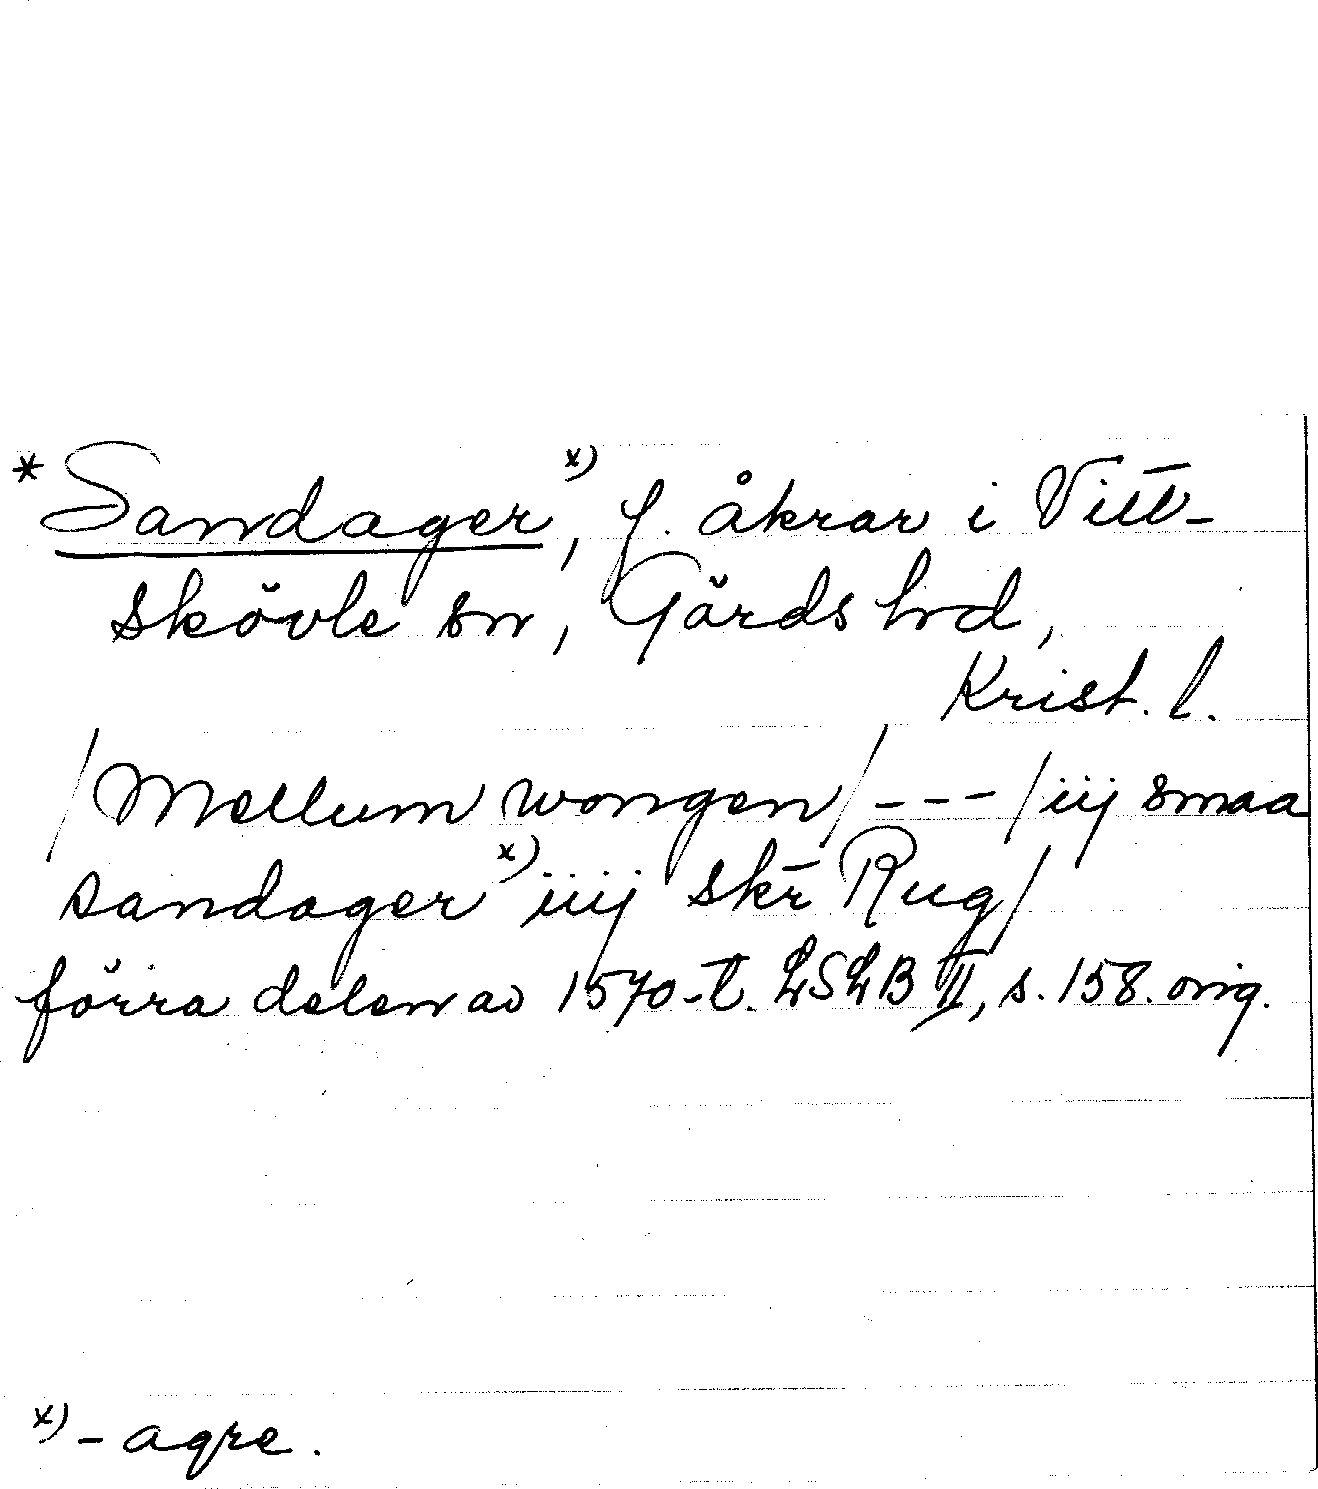 *Sandager x), f. åkrar i Vitt-
skövle sn, Gärds hd,
Krist. l.
/Mellum wongen/ --- /iij smaa
sandager x) iiij skr Rug/
förra delen av 1570-t. LSLB II, s. 158. orig.
x) - agre.